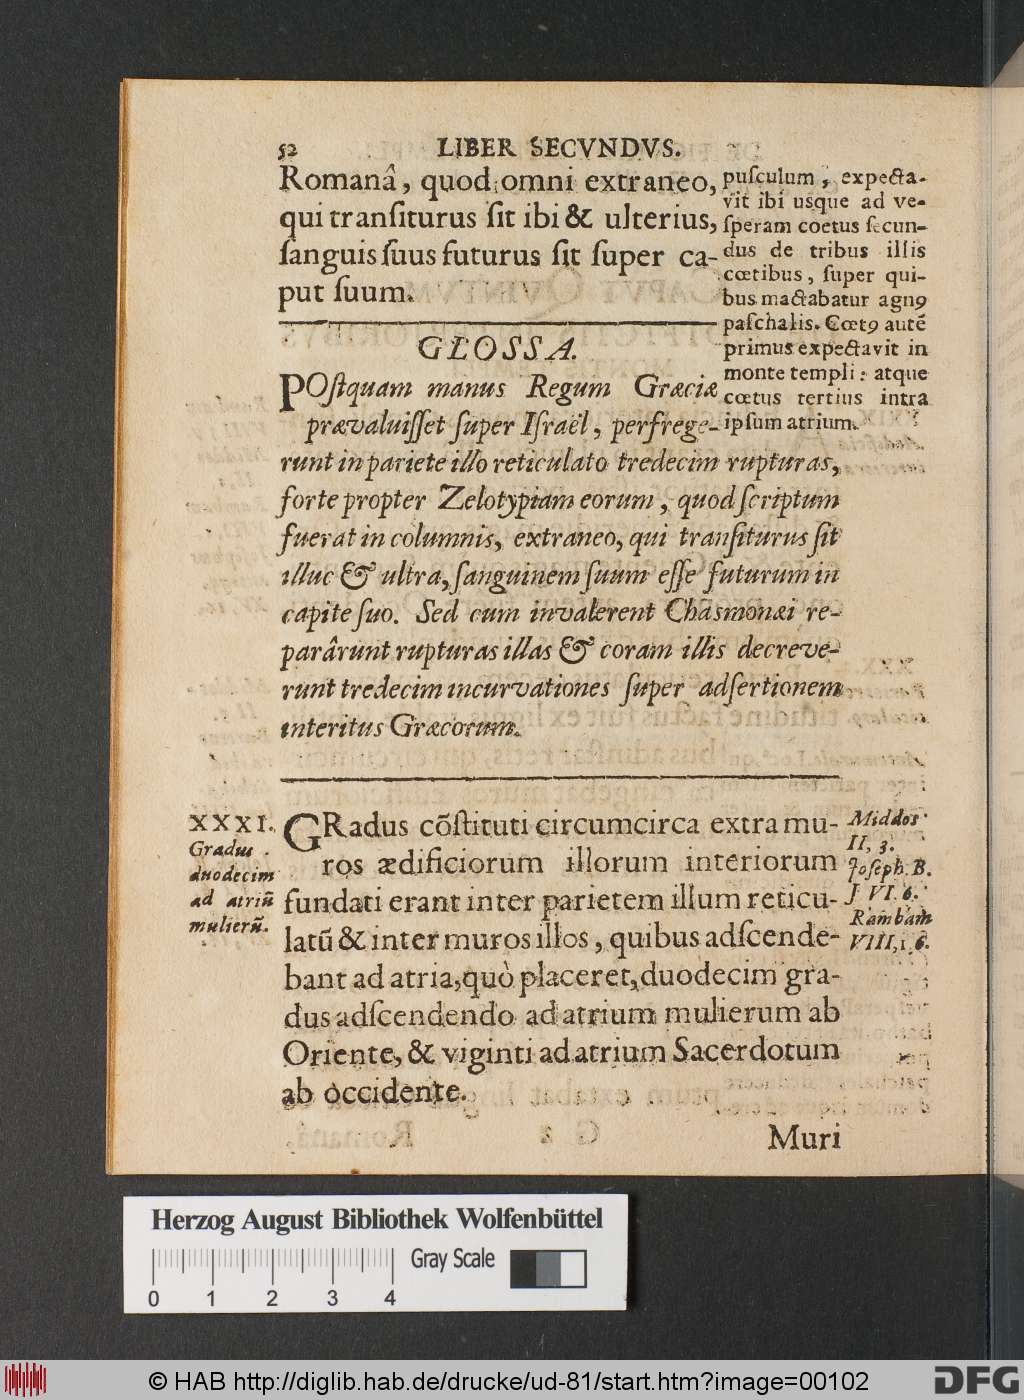 52
LIBER SECVNDVS.
Romanâ, quod omni extraneo,
qui tranſiturus ſit ibi & ulterius,
ſanguis ſuus futurus ſit ſuper ca-
put ſuum.
puſculum, expecta-
vit ibi usque ad ve-
ſperam coetus ſecun-
dus de tribus illis
cœtibus, ſuper qui-
bus mactabatur agnꝰ
paſchalis. Cœtꝰ autẽ
primus expectavit in
monte templi: atque
cœtus tertius intra
ipſum atrium.
GLOSSA.
POſtquam manus Regum Græciæ
prævaluiſſet ſuper Iſraël, perfrege-
runt in pariete illo reticulato tredecim rupturas,
forte propter Zelotypiam eorum, quod ſcriptum
fuerat in columnis, extraneo, qui tranſiturus ſit
illuc & ultra, ſanguinem ſuum eſſe futurum in
capite ſuo. Sed cum invalerent Chasmonæi re-
parârunt rupturas illas & coram illis decreve-
runt tredecim incurvationes ſuper adſertionem
interitus Græcorum.
XXXI.
Gradus
duodecim
ad atriũ
mulierũ.
GRadus cõſtituti circumcirca extra mu-
ros ædificiorum illorum interiorum
fundati erant inter parietem illum reticu-
latũ & inter muros illos, quibus adſcende-
bant ad atria, quò placeret, duodecim gra-
dus adſcendendo ad atrium mulierum ab
Oriente, & viginti ad atrium Sacerdotum
ab occidente.
Middos
II, 3.
Joſeph. B.
J VI. 6.
Rambam
VIII, 1. 6.
Muri
Herzog August Bibliothek Wolfenbüttel
Gray Scale
0 1 2 3 4
© HAB http://diglib.hab.de/drucke/ud-81/start.htm?image=00102
DFG